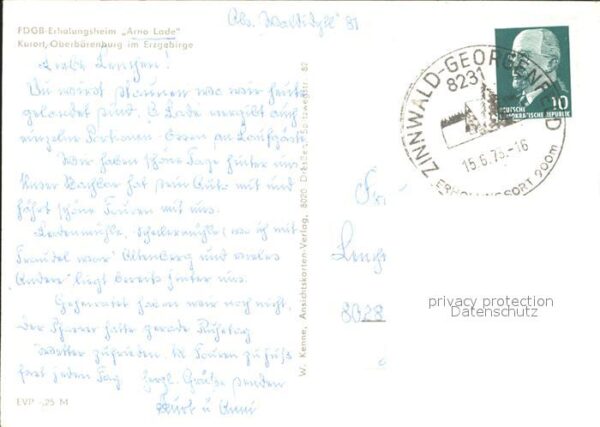 Abs. Waldidyll 81
FDGB-Erholungsheim „Arno Lade"
Kurort Oberbärenburg im Erzgebirge
Liebe Lenchen!
Du wirst staunen wo wir heute
gelandet sind. A. Lade vergibt auch
einzelne Portionen Essen an Laufgäste
Wir haben schöne Tage hinter uns
Unser Nachbar hat sein Auto mit und
fährt schöne Touren mit uns.
Ladenmühle, Schellermühle (wo ich mit
Traudel war) Altenberg und vieles
Andere liegt bereits hinter uns.
Geheiratet haben wir noch nicht.
Der Pfarrer hatte gerade Ruhetag
Wetter zufrieden. Touren zu fuß
fast jeden Tag Herzl. Grüße senden
Kurt u Anni
EVP -,25 M
W. Kenne, Ansichtskarten-Verlag, 8020 Dresden,
ZINNWALD-GEORGENFELD
8231
15.6.75.-16
ERHOLUNGSORT 900m
DEUTSCHE
DEMOKRATISCHE REPUBLIK
Fr.
8028
privacy protection
Datenschutz